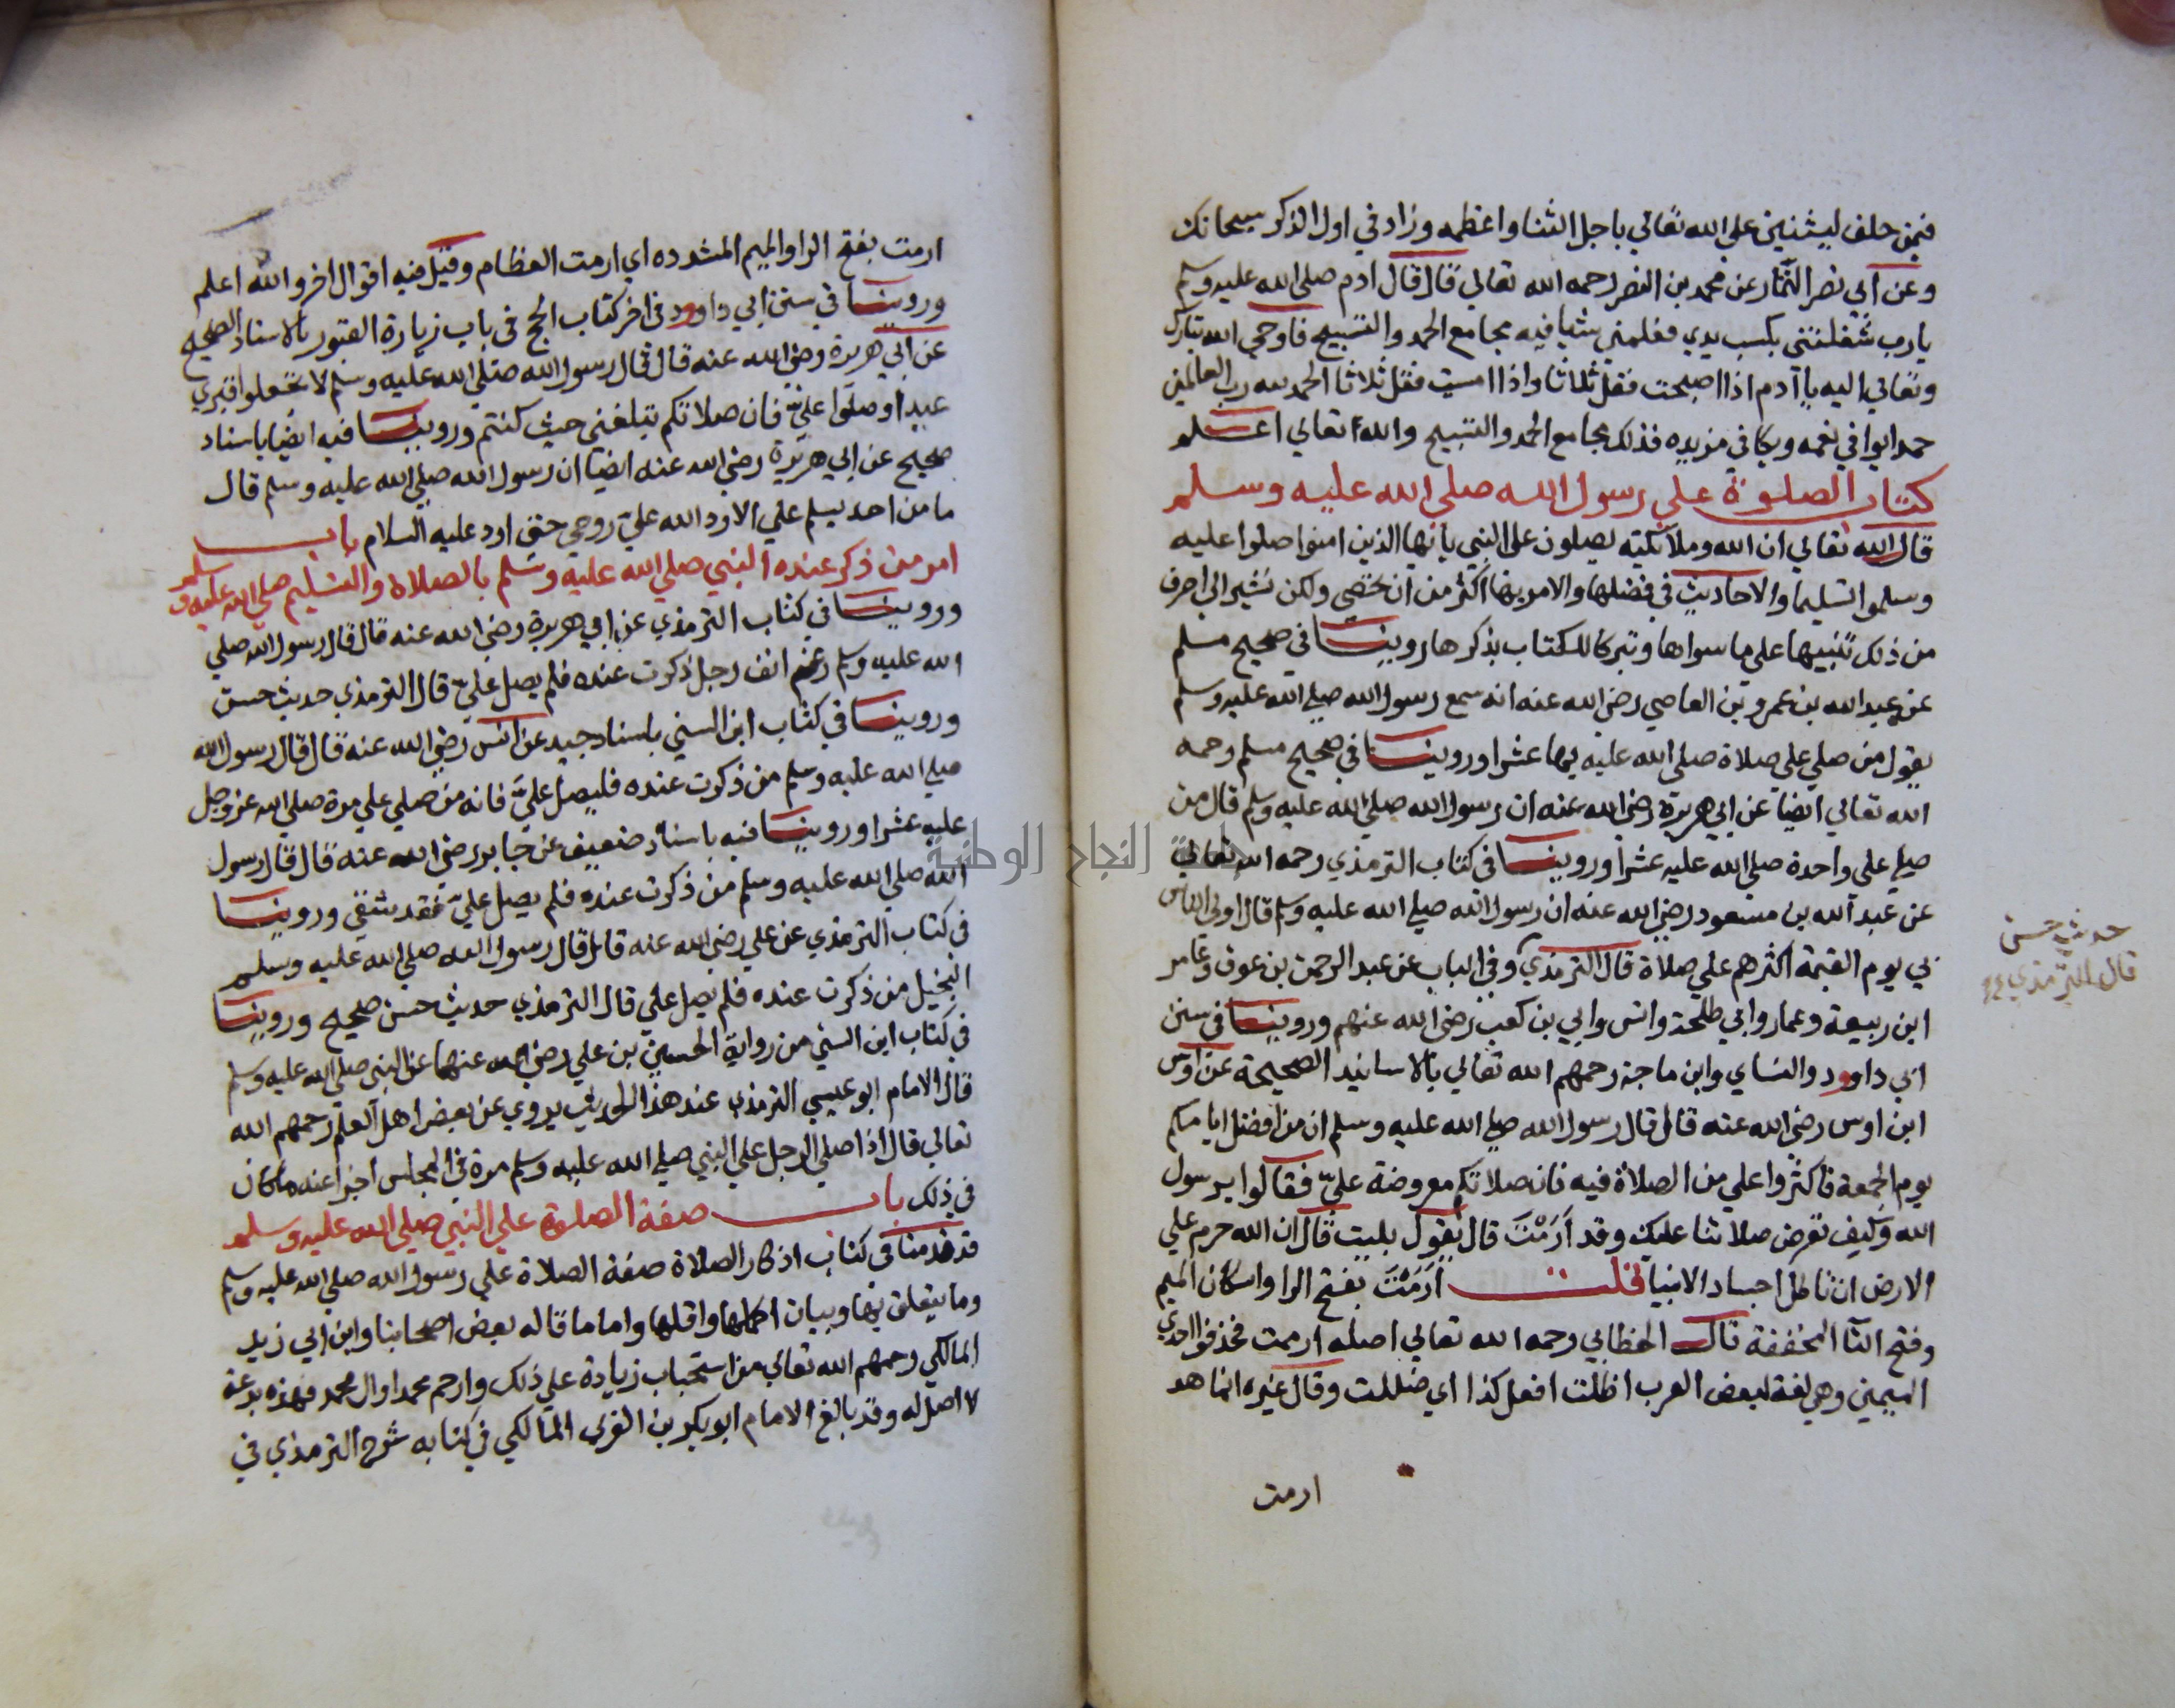 فيمن حلف ليثنين علي الله تعالي باجل الثنا واعظمه وزاد في اول الذكر سبحانك
وعن ابي نصر التمار عن محمد بن النضر رحمه الله تعالي قال قال ادم صلي الله عليه وسلم
يارب شغلتني بكسب يدي فعلمني شيا فيه مجامع الحمد والتسبيح فاوحي الله تبارك
وتعالي اليه يا آدم اذا اصبحت فقل ثلاثا واذا امسيت فقل ثلاثا الحمد لله رب العالمين
حمدا يوافي نعمه ويكافي مزيده فذلك مجامع الحمد والتسبيح والله تعالي اعلم
كتاب الصلوة علي رسول الله صلي الله عليه وسلم
قال الله تعالي ان الله وملآئكته يصلون علي النبي يا ايها الذين امنوا صلوا عليه
وسلموا تسليما والاحاديث في فضلها والامر بها اكثر من ان تحصي ولكن نشير الي احرف
من ذلك تنبيها علي ما سواها وتبركا للكتاب بذكرها روينا في صحيح مسلم
عن عبد الله بن عمرو بن العاصي رضي الله عنه انه سمع رسول الله صلي الله عليه وسلم
يقول من صلي علي صلاة صلي الله عليه بها عشرا وروينا في صحيح مسلم رحمه
الله تعالي ايضا عن ابي هريرة رضي الله عنه ان رسول الله صلي الله عليه وسلم قال من
صلي علي واحدة صلي الله عليه عشرا وروينا في كتاب الترمذي رحمه الله تعالي
عن عبد الله بن مسعود رضي الله عنه ان رسول الله صلي الله عليه وسلم قال اولي الناس
بي يوم القيمة اكثرهم علي صلاة قال الترمذي وفي الباب عن عبد الرحمن بن عوف وعامر
ابن ربيعة وعمار وابي طلحة وانس وابي بن كعب رضي الله عنهم وروينا في سنن
ابي داوود والنساي وابن ماجة رحمهم الله تعالي بالاسانيد الصحيحة عن اوس
ابن اوس رضي الله عنه قال قال رسول الله صلي الله عليه وسلم ان من افضل ايامكم
يوم الجمعة فاكثروا علي من الصلاة فيه فان صلاتكم معروضة عليّ فقالوا يرسول
الله وكيف تعرض صلاتنا عليك وقد اَرَمْتَ قال يقول بليت قال ان الله حرم علي
الارض ان تاكل اجساد الانبيا قلت اَرَمْتَ بفتح الرا واسكان الميم
وفتح التآ المخففة قال الخطابي رحمه الله تعالي اصله ارممت فحذفوا احدي
الميمين وهي لغة لبعض العرب اظلت افعل كذا اي ظللت وقال غيره انما هو
ارمت
حديث حسن
قال الترمذي
ارمت بفتح الرا والميم المشدده اي ارمت العظام وقيل فيه اقوال اخر والله اعلم
وروينا في سنن ابي داوود في اخر كتاب الحج في باب زيارة القبور بالاسناد الصحيح
عن ابي هريرة رضي الله عنه قال قال رسول الله صلي الله عليه وسلم لا تجعلوا قبري
عيدا وصلوا عليّ فان صلاتكم تبلغني حيث كنتم وروينا فيه ايضا باسناد
صحيح عن ابي هريرة رضي الله عنه ايضا ان رسول الله صلي الله عليه وسلم قال
ما من احد يسلم علي الا رد الله عليّ روحي حتي ارد عليه السلام باب
امر من ذكر عنده النبي صلي الله عليه وسلم بالصلاة والتسليم صلي الله عليه وسلم
وروينا في كتاب الترمذي عن ابي هريرة رضي الله عنه قال قال رسول الله صلي
الله عليه وسلم رغم انف رجل ذكرت عنده فلم يصل عليّ قال الترمذي حديث حسن
وروينا في كتاب ابن السني باسناد جيد عن انس رضي الله عنه قال قال رسول الله
صلي الله عليه وسلم من ذكرت عنده فليصل عليّ فانه من صلي علي مرة صلي الله عز وجل
عليه عشرا وروينا فيه باسناد ضعيف عن جابر رضي الله عنه قال قال رسول
الله صلي الله عليه وسلم من ذكرت عنده فلم يصل عليّ فقد شقي وروينا
في كتاب الترمذي عن علي رضي الله عنه قال قال رسول الله صلي الله عليه وسلم
البخيل من ذكرت عنده فلم يصل علي قال الترمذي حديث حسن صحيح وروينا
في كتاب ابن السني من رواية الحسين بن علي رضي الله عنهما عن النبي صلي الله عليه وسلم
قال الامام ابو عيسي الترمذي عند هذا الحديث يروي عن بعض اهل العلم رحمهم الله
تعالي قال اذا صلي الرجل علي النبي صلي الله عليه وسلم مرة في المجلس اجزا عنه ما كان
في ذلك باب صفة الصلوة علي النبي صلي الله عليه وسلم
قد قدمنا في كتاب اذكار الصلاة صفة الصلاة علي رسول الله صلي الله عليه وسلم
وما يتعلق بها وبيان اكملها واقلها واما ما قاله بعض اصحابنا وابن ابي زيد
المالكي رحمهم الله تعالي من استحباب زيادة علي ذلك وارحم محمدا وال محمد فهذه بدعة
لا اصل له وقد بالغ الامام ابو بكر بن العربي المالكي في كتابه شرح الترمذي في
جامعة النجاح الوطنية